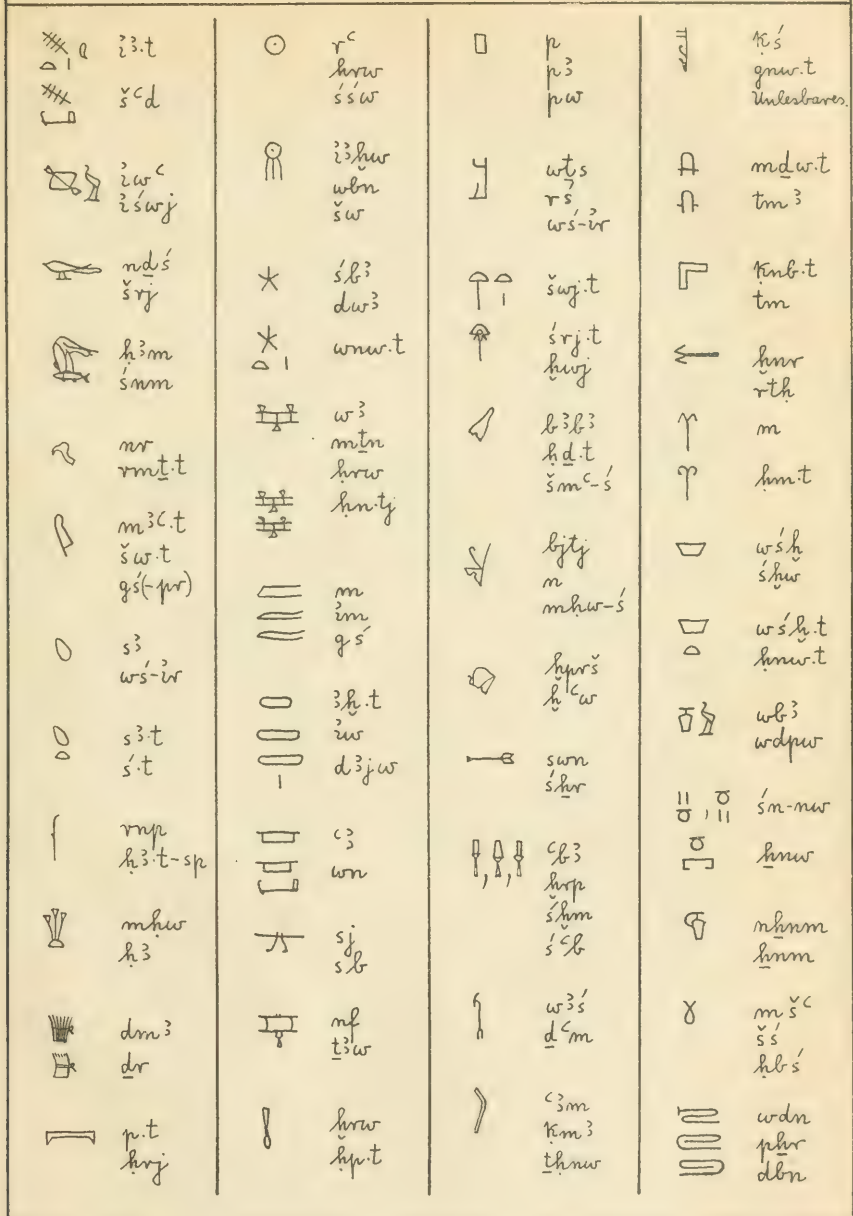 ỉꜣ.t
šꜥd
ỉwꜥ
ỉświ͗j
nḏś
šrj
ḥꜣm
śnm
nr
rmṯ.t
mꜣꜥ.t
šw.t
gś(-pr)
sꜣ
wś-ỉr
sꜣ.t
ś.t
rnp
ḥꜣ.t-sp
mḥw
ḥꜣ
dmꜣ
ḏr
p.t
ḥrj
rꜥ
hrw
śśw
ỉꜣḫw
wbn
šw
śbꜣ
dwꜣ
wnw.t
wꜣ
mṯn
ḥrw
ḥn.tj
m
ỉm
gś
ꜣḫ.t
ỉw
dꜣjw
ꜥꜣ
wn
sj
sb
nf
ṯꜣw
hrw
ḫp.t
p
pꜣ
pw
wṯs
rś
wś-ỉr
šwj.t
śrj.t
ḫwj
bꜣbꜣ
ḥḏ.t
šmꜥ-ś
bjtj
n
mḥw-ś
ḫprš
ḫꜥw
swn
śẖr
ꜥbꜣ
ḫrp
śḫm
śꜥb
wꜣś
ḏꜥm
ꜥꜣm
ḳmꜣ
ṯḥnw
ḳś
gnw.t
Unlesbares.
mḏw.t
tmꜣ
ḳnb.t
tm
ḫnr
rtḥ
m
ḥm.t
wśḫ
śḫw
wśḫ.t
ḥnw.t
wbꜣ
wdpw
śn-nw
ẖnw
nẖnm
ẖnm
mšꜥ
šś
ḥbś
wdn
pẖr
dbn